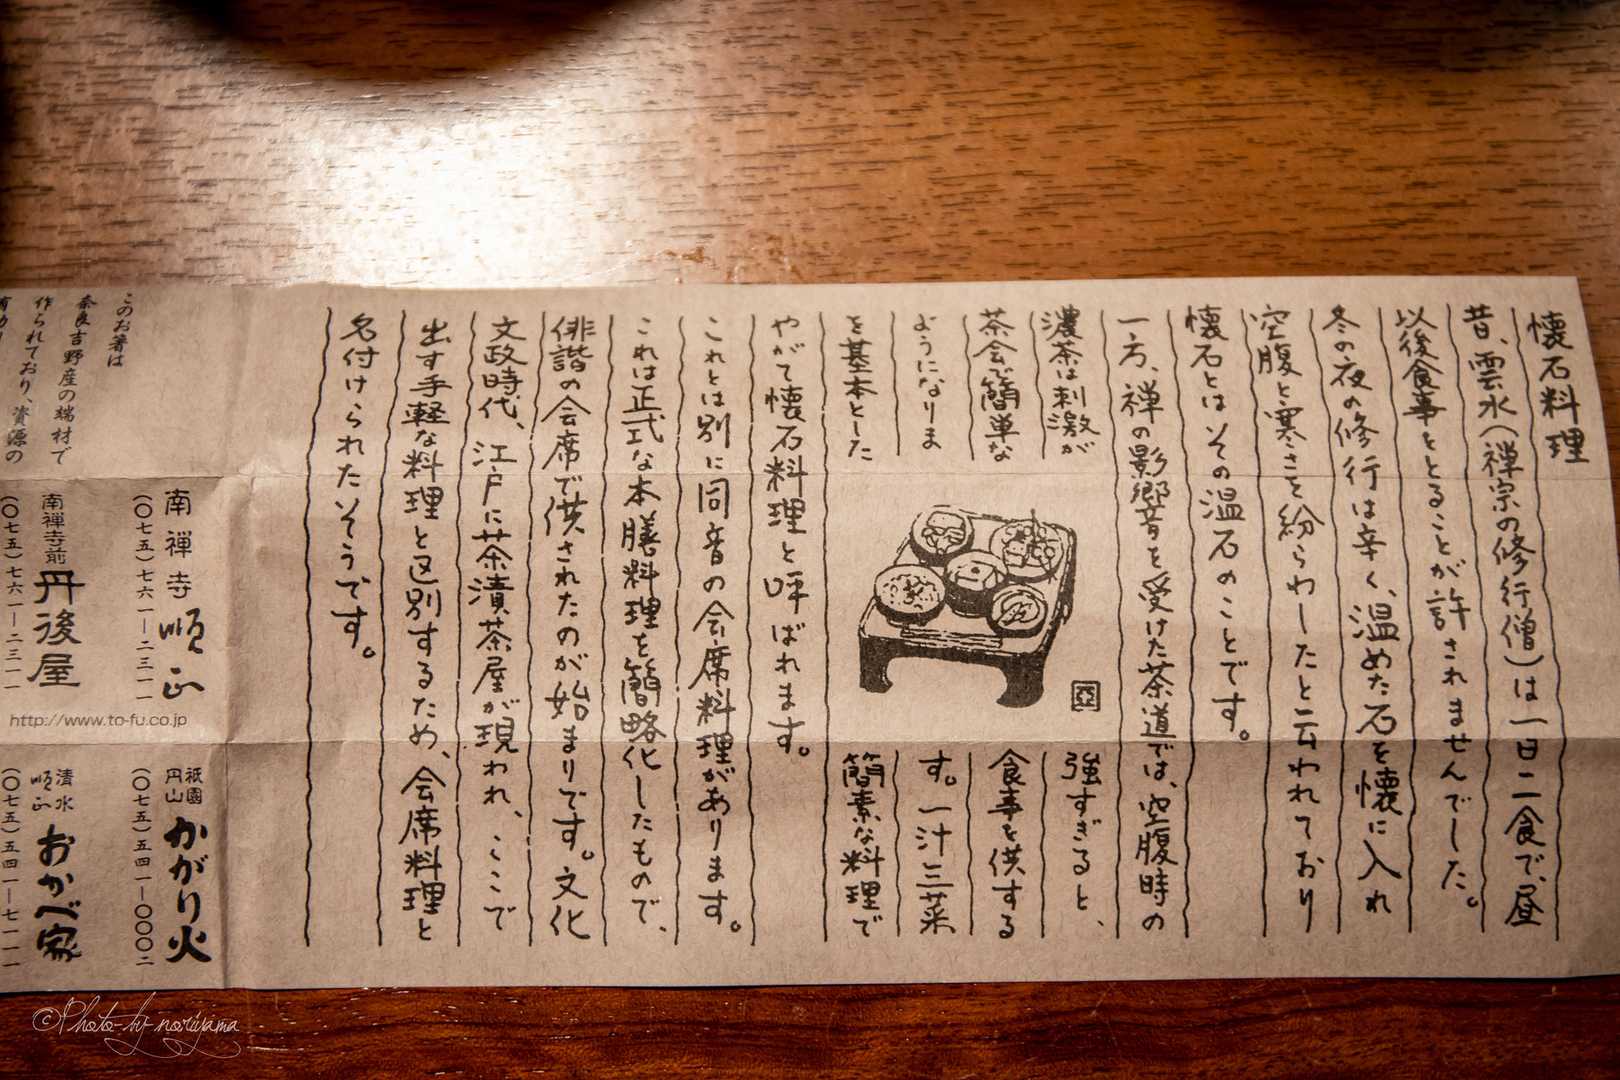 懐石料理
昔、雲水(禅宗の修行僧)は一日二食で、昼
以後食事をとることが許されませんでした。
冬の夜の修行は辛く、温めた石を懐に入れ
空腹と寒さを紛らわしたと云われており
懐石とはその温石のことです。
一方、禅の影響を受けた茶道では、空腹時の
濃茶は刺激が強すぎると、
茶会で簡単な食事を供する
ようになります。一汁三菜
を基本とした簡素な料理で
やがて懐石料理と呼ばれます。
これとは別に同音の会席料理があります。
これは正式な本膳料理を簡略化したもので、
俳諧の会席で供されたのが始まりです。文化
文政時代、江戸に茶漬茶屋が現われ、ここで
出す手軽な料理と区別するため、会席料理と
名付けられたそうです。
亞
このお箸は
奈良吉野産の端材で
作られており、資源の
南禅寺 順正
(〇七五)七六一―二三一一
南禅寺前 丹後屋
(〇七五)七六一―二三一一
http://www.to-fu.co.jp
祇園円山 かがり火
(〇七五)五四一―〇〇〇二
清水順正 おかべ家
(〇七五)五四一―七一一一
©Photo by noriyama